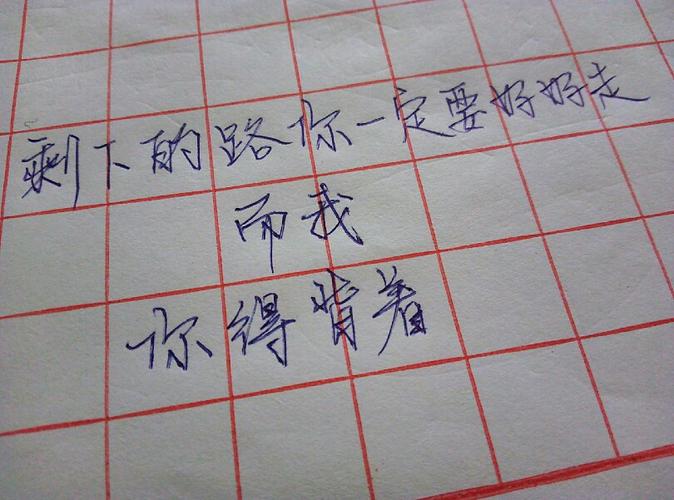 剩下的路你一定要好好走
而我
你得背着